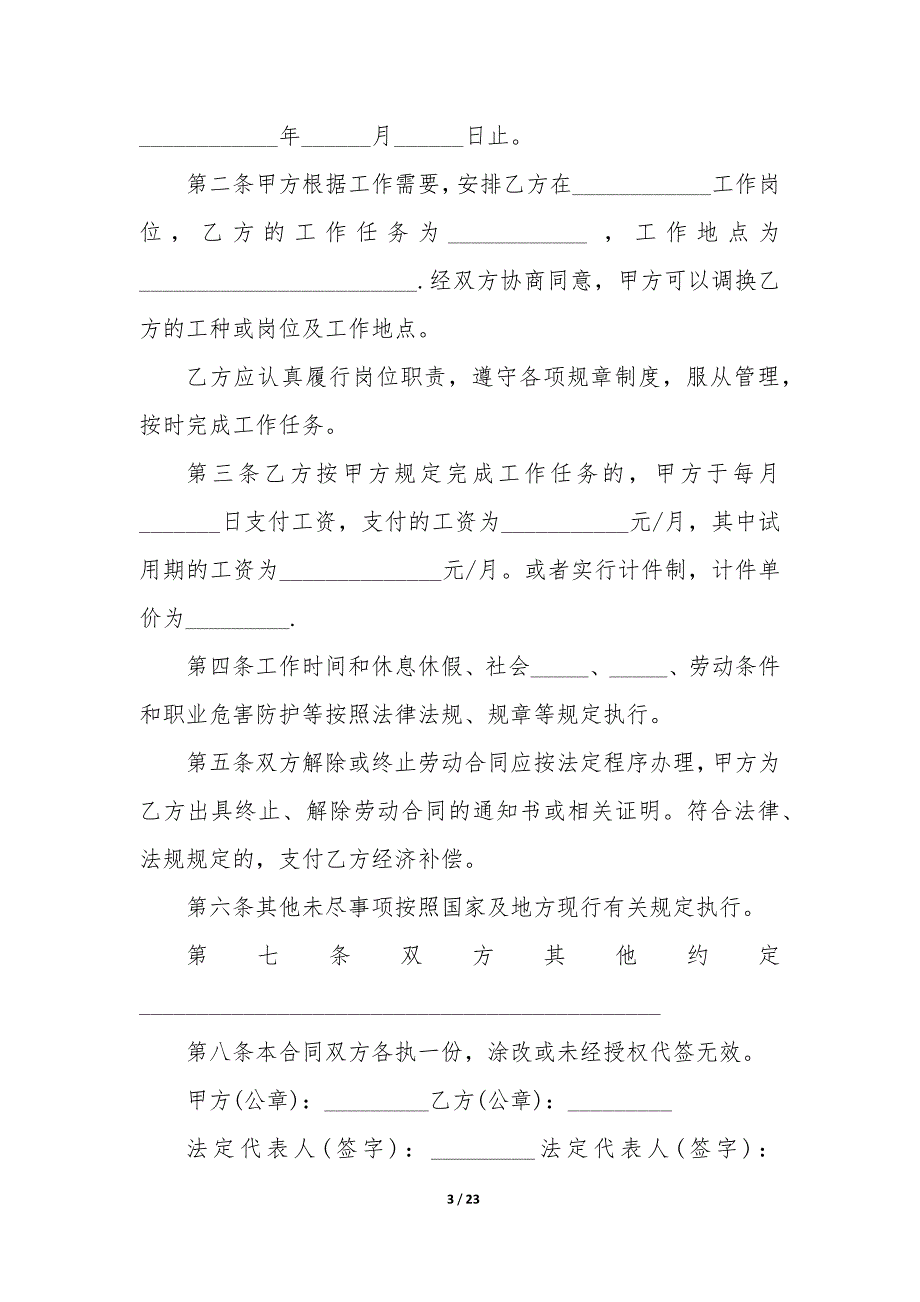 ____________年______月______日止。
第二条甲方根据工作需要，安排乙方在____________工作岗
位，乙方的工作任务为____________，工作地点为
________________________.经双方协商同意，甲方可以调换乙
方的工种或岗位及工作地点。
乙方应认真履行岗位职责，遵守各项规章制度，服从管理，
按时完成工作任务。
第三条乙方按甲方规定完成工作任务的，甲方于每月
_______日支付工资，支付的工资为___________元/月，其中试
用期的工资为______________元/月。或者实行计件制，计件单
价为_________.
第四条工作时间和休息休假、社会_____、_____、劳动条件
和职业危害防护等按照法律法规、规章等规定执行。
第五条双方解除或终止劳动合同应按法定程序办理，甲方为
乙方出具终止、解除劳动合同的通知书或相关证明。符合法律、
法规规定的，支付乙方经济补偿。
第六条其他未尽事项按照国家及地方现行有关规定执行。
第七条双方其他约定
_____________________________________________
第八条本合同双方各执一份，涂改或未经授权代签无效。
甲方(公章)：_________乙方(公章)：_________
法定代表人(签字)：_________法定代表人(签字)：
3 / 23